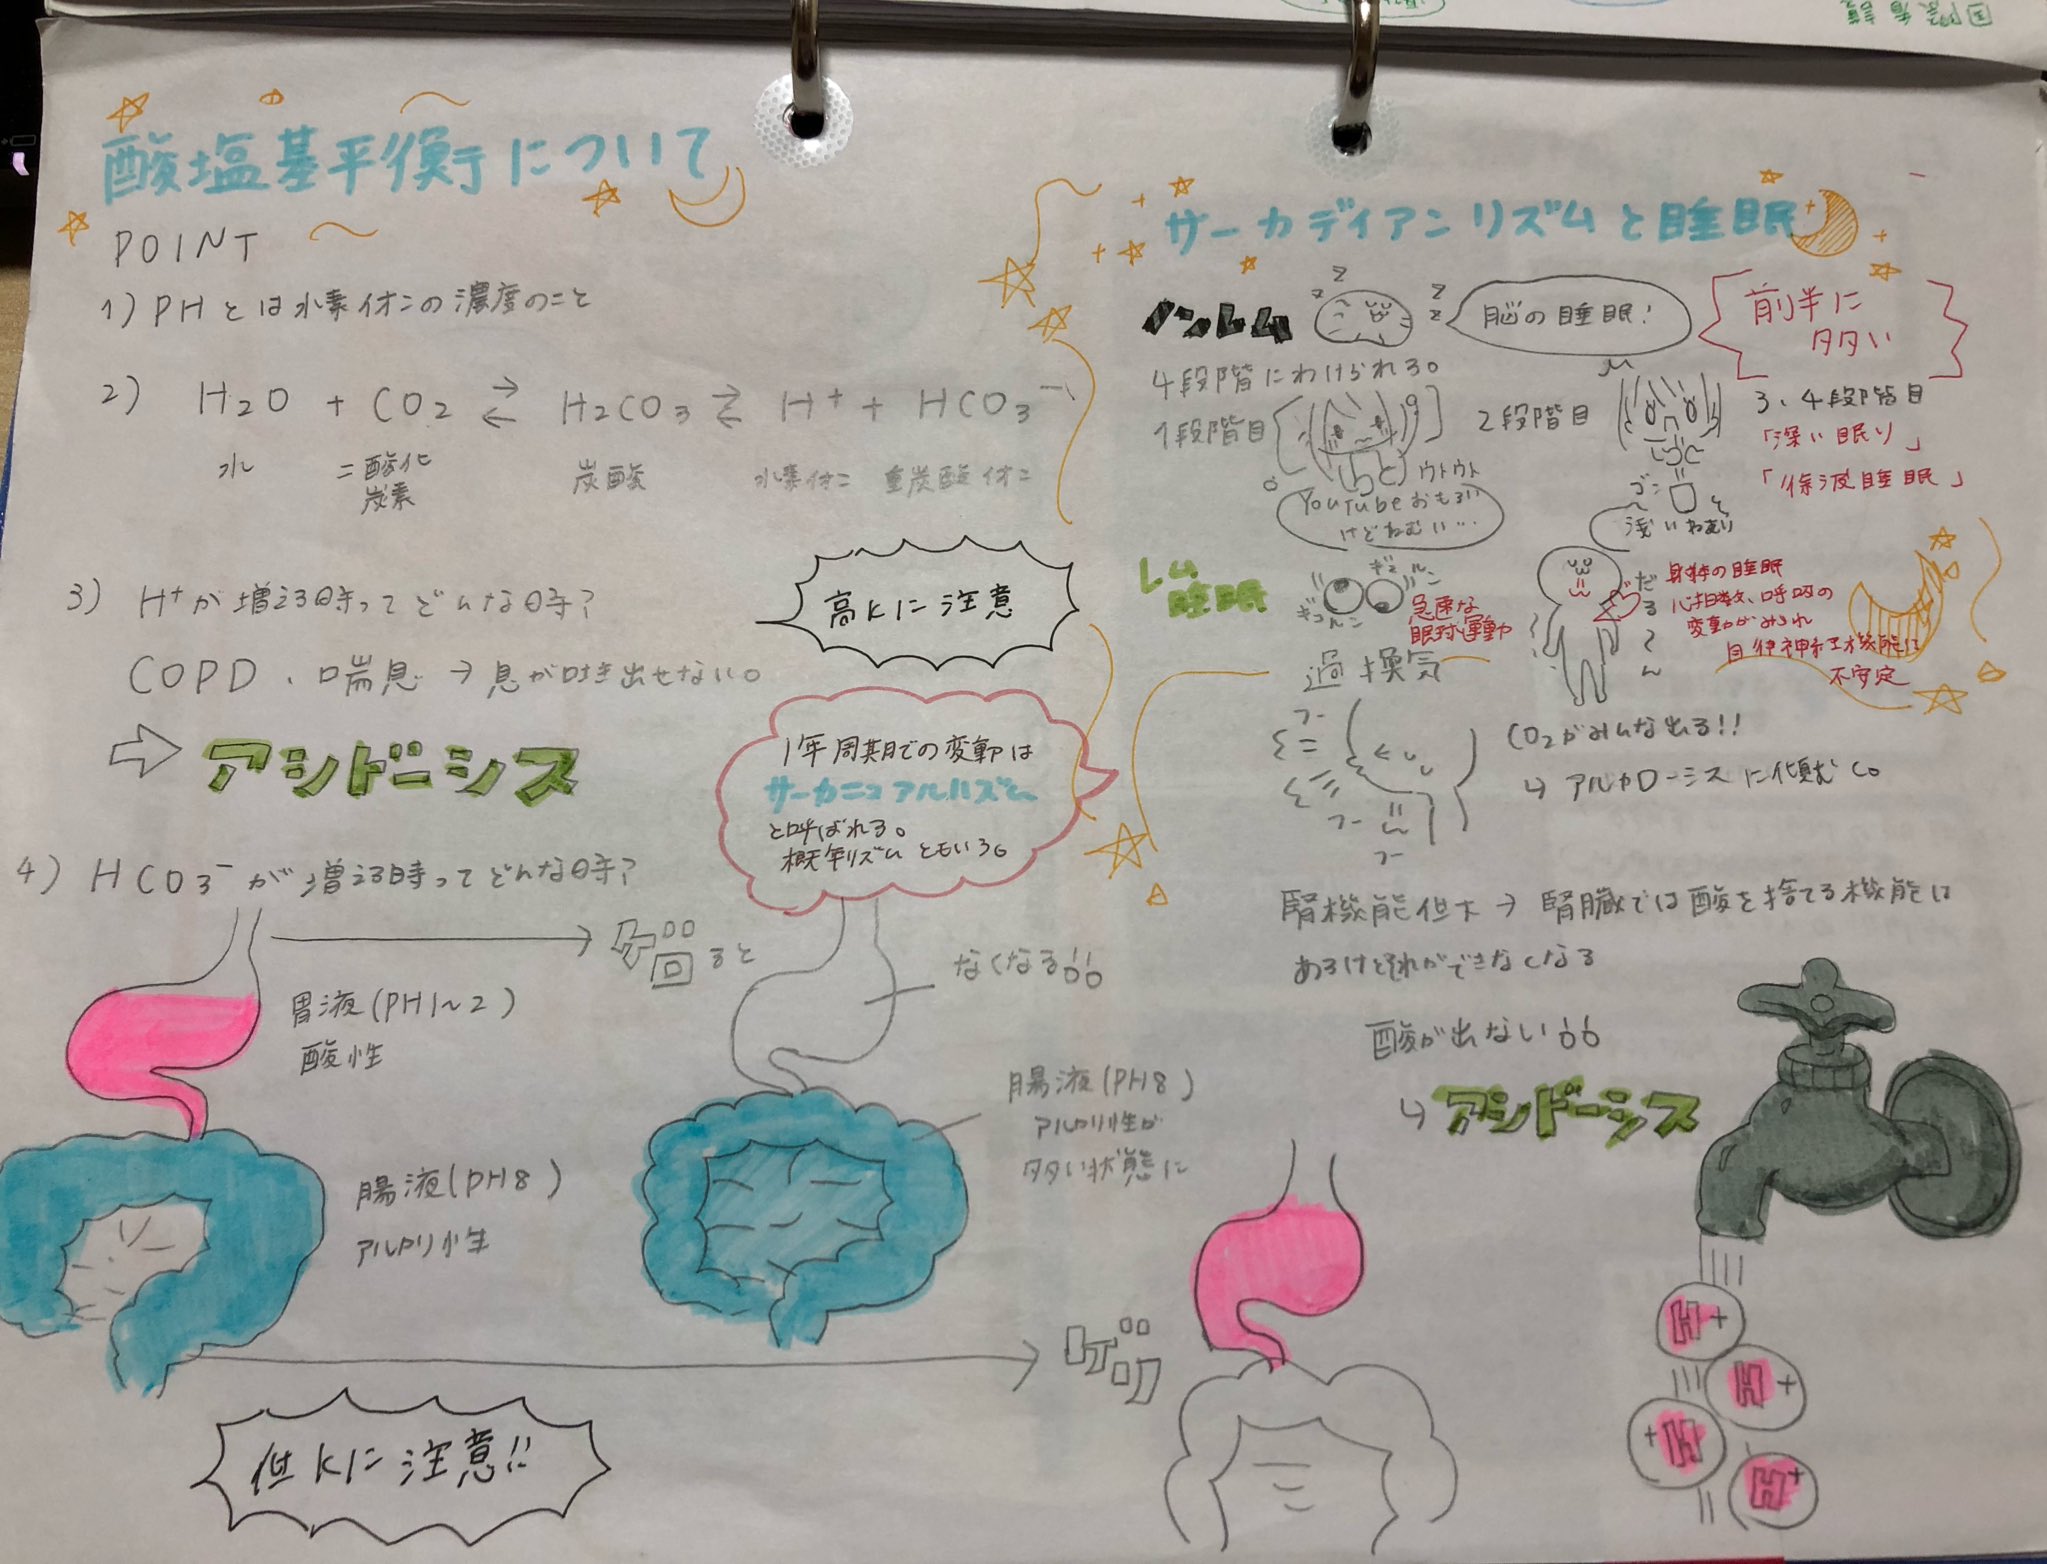 酸塩基平衡について
POINT
1) PHとは水素イオンの濃度のこと
2) H2O + CO2 ⇄ H2CO3 ⇄ H+ + HCO3-
水 二酸化炭素 炭酸 水素イオン 重炭酸イオン
3) H+が増える時ってどんな時?
COPD、喘息 → 息が吐き出せない。
⇨ アシドーシス
高Kに注意
1年周期での変動は
サーカニュアルリズム
と呼ばれる。
概年リズムともいう。
4) HCO3-が増える時ってどんな時?
胃液(PH1~2)
酸性
腸液(PH8)
アルカリ性
なくなる
腸液(PH8)
アルカリ性が
多い状態に
ゲリ
低Kに注意!!
サーカディアンリズムと睡眠
ノンレム
z z z z
脳の睡眠!
前半に
多い
4段階にわけられる。
1段階目
ウトウト
YouTubeおもろい
けどねむい…
2段階目
ゴンッ
浅いねむり
3、4段階目
「深い眠り」
「徐波睡眠」
レム
睡眠
ギョルン
ギョルン
急速な
眼球運動
だる〜ん
身体の睡眠
心拍数、呼吸の
変動がみられ
自律神経機能は
不安定
過換気
フー
フー
フー
CO2がみんな出る!!
↳ アルカローシスに傾むく。
腎機能低下 → 腎臓では酸を捨てる機能は
あるけどそれができなくなる
酸が出ない
↳ アシドーシス
H+
H+
+H
H+